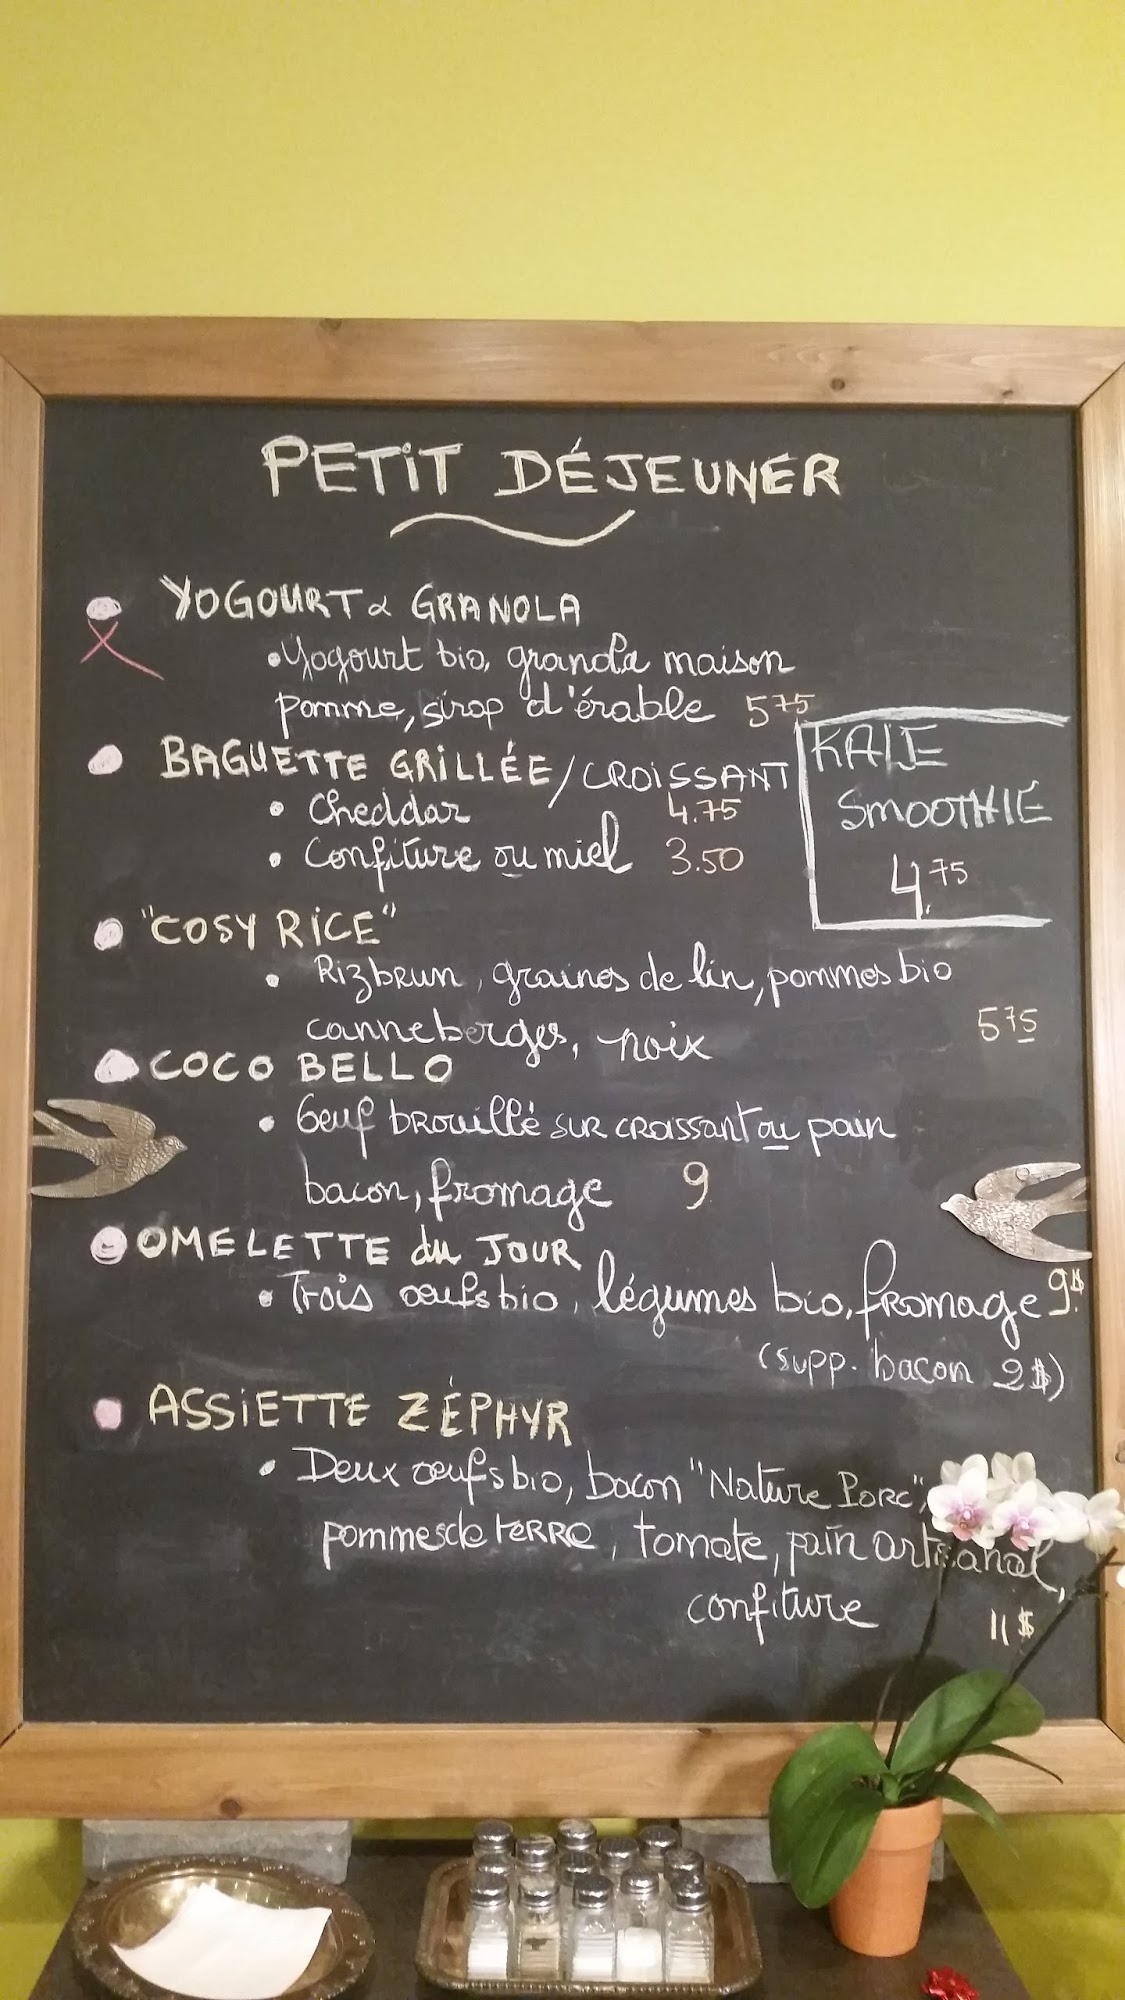 PETIT DÉJEUNER
YOGOURT & GRANOLA
• Yogourt bio, granola maison
pomme, sirop d'érable 5 75
BAGUETTE GRILLÉE / CROISSANT
• Cheddar 4.75
• Confiture ou miel 3.50
KALE
SMOOTHIE
4.75
"COSY RICE"
• Riz brun, graines de lin, pommes bio
canneberges, noix 5 75
COCO BELLO
• Oeuf brouillé sur croissant ou pain
bacon, fromage 9
OMELETTE du JOUR
• Trois oeufs bio, légumes bio, fromage 9.$
(supp. bacon 2$)
ASSIETTE ZÉPHYR
• Deux oeufs bio, bacon "Nature Porc",
pommes de terre, tomate, pain artisanal,
confiture 11$